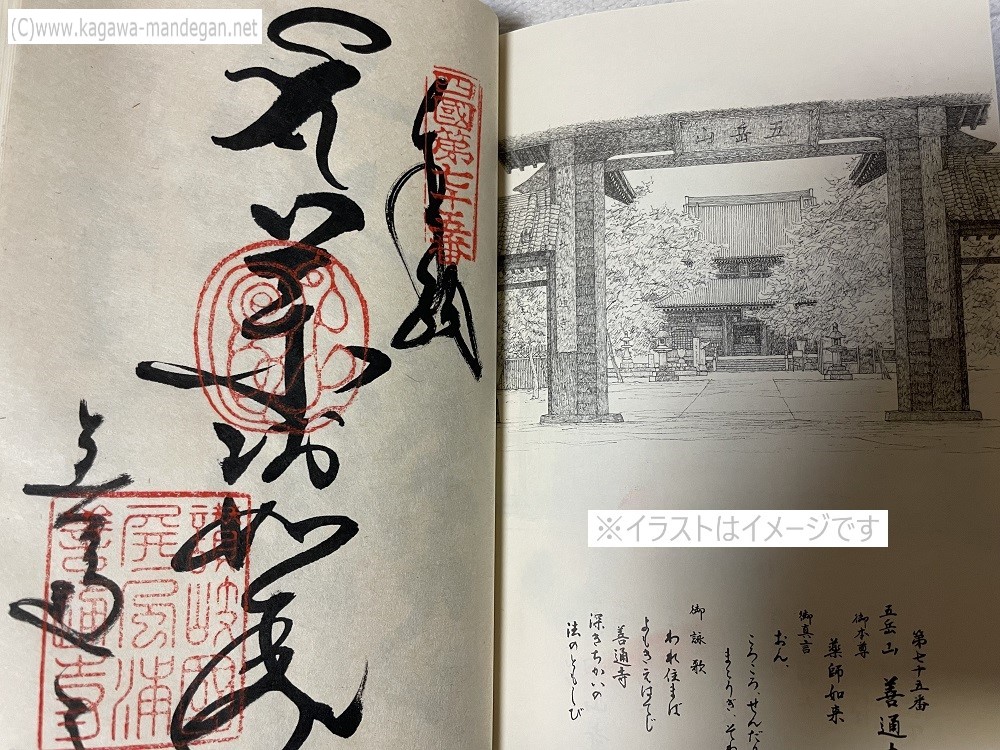 (C)www.kagawa-mandegan.net
四國第七十五番
奉納
薬師如来
善通寺
讃岐國
屏風浦
善通寺
五岳山
※イラストはイメージです
第七十五番
五岳山 善通
御本尊
薬師如来
御真言
おん、
ころころ、せんだり
まとうぎ、そわ
御詠歌
われ住まば
よもきえはてじ
善通寺
深きちかいの
法のともしび